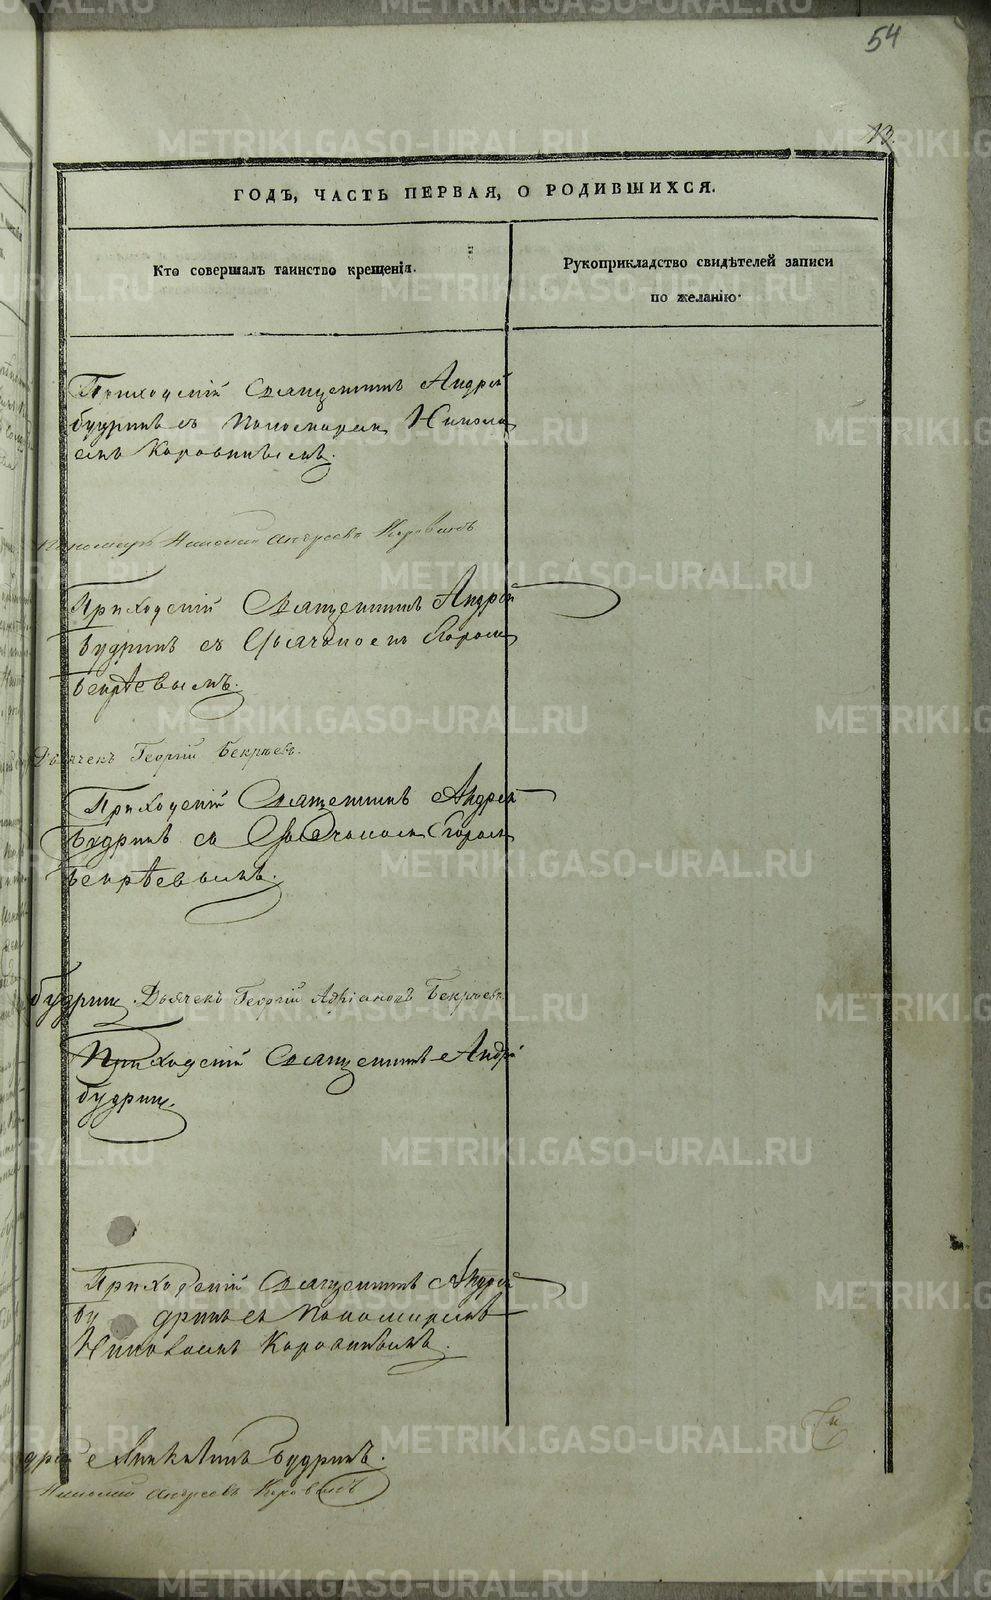 54
13.
ГОДЪ, ЧАСТЬ ПЕРВАЯ, О РОДИВШИХСЯ.
Кто совершалъ таинство крещенія.
Рукоприкладство свидѣтелей записи
по желанію.
Приходскій Священникъ Андрей
Будринъ съ Пономаремъ Никола
емъ Коровинымъ.
Пономарь Николай Андреевъ Коровинъ
Приходскій Священникъ Андрей
Будринъ съ Дьячкомъ Егоромъ
Бекрѣевымъ.
Дьячекъ Георгій Бекрѣевъ.
Приходскій Священникъ Андрей
Будринъ съ Дьячкомъ Егоромъ
Бекрѣевымъ.
Будринъ Дьячекъ Георгій Адріановъ Бекрѣевъ
Приходскій Священникъ Андрей
Будринъ.
Приходскій Священникъ Андрей
Бу дринъ съ Пономаремъ
Николаемъ Коровинымъ.
дрей Будринъ.
Николай Андреевъ Коровинъ
METRIKI.GASO-URAL.RU